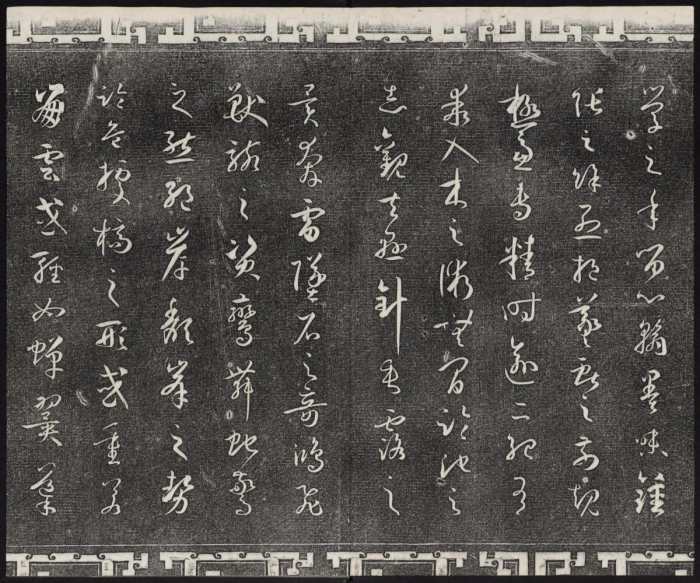 學之年留心翰墨味鍾
張之餘烈挹羲獻之前規
極慮專精時逾二紀有
乖入木之術無間臨池之
志觀夫懸針垂露之
異奔雷墜石之奇鴻飛
獸駭之資鸞舞蛇驚
之態絕岸頹峯之勢
臨危據槁之形或重若
崩雲或輕如蟬翼導